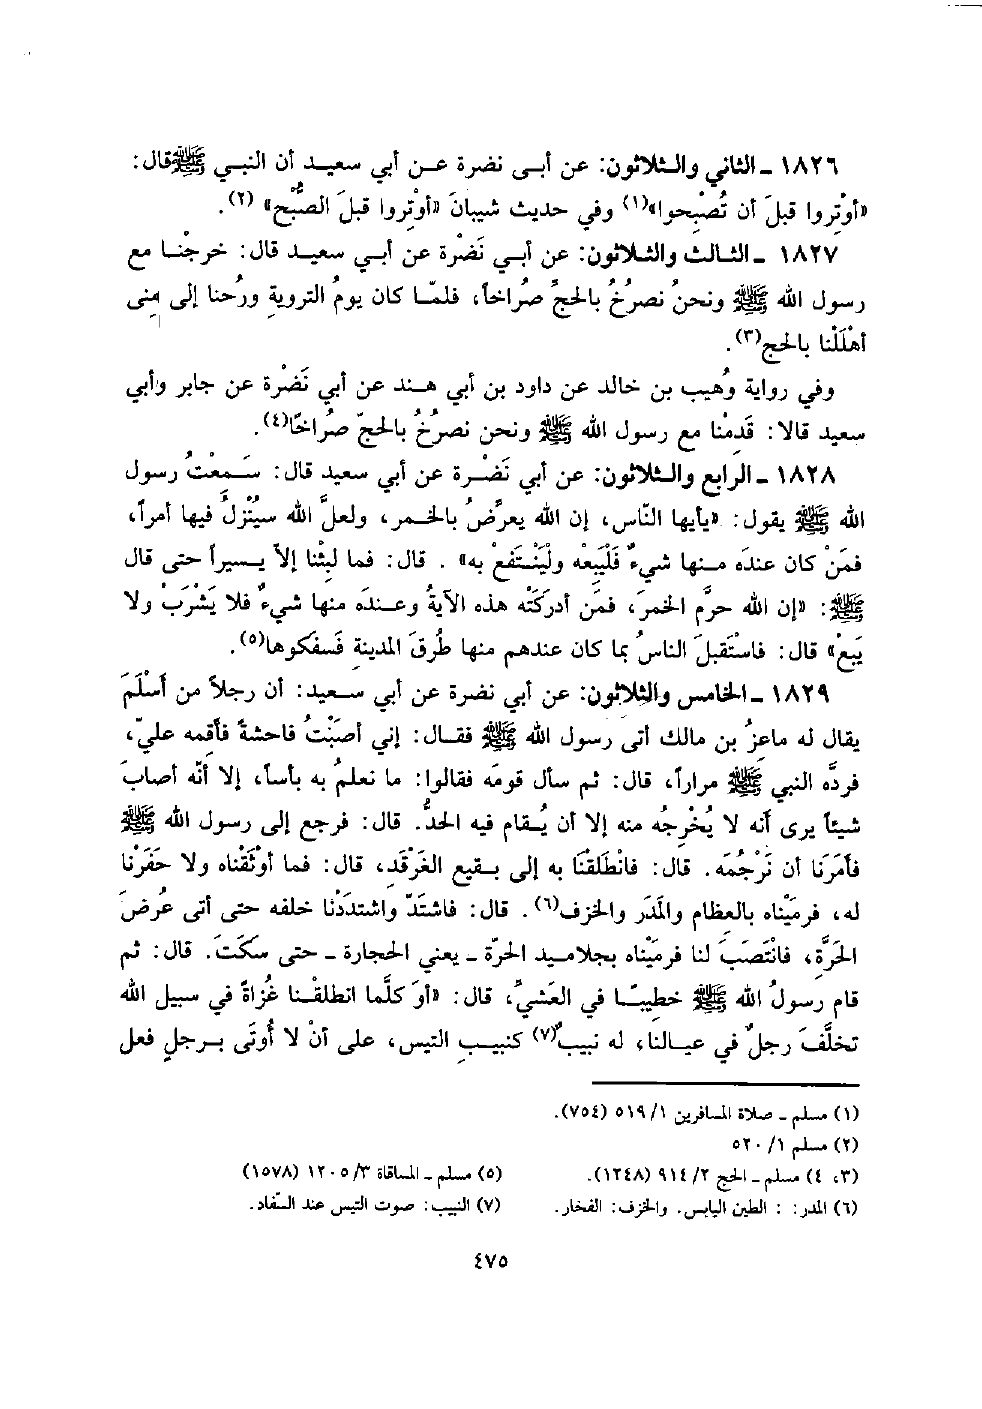 ١٨٢٦ ـ الثاني والثلاثون: عن أبى نضرة عن أبي سعيد أن النبي ﷺ قال:
«أوْتِروا قبلَ أن تُصْبِحوا»(١) وفي حديث شيبانَ «أوْتِروا قبلَ الصُّبْح» (٢).
١٨٢٧ ـ الثالث والثلاثون: عن أبي نَضْرة عن أبي سعيد قال: خرجْنا مع
رسول الله ﷺ ونحنُ نصرُخُ بالحجِّ صُراخاً، فلمّا كان يومُ التروية ورُحنا إلى مِنى
أهْلَلْنا بالحج(٣).
وفي رواية وُهيب بن خالد عن داود بن أبي هند عن أبي نَضْرة عن جابر وأبي
سعيد قالا: قَدِمْنا مع رسول الله ﷺ ونحن نصرُخُ بالحجّ صُراخًا(٤).
١٨٢٨ ـ الرابع والثلاثون: عن أبي نَضْرة عن أبي سعيد قال: سَمعْتُ رسول
الله ﷺ يقول: «يأيها النّاس، إن الله يعرِّضُ بالخمر، ولعلَّ الله سيُنْزلُ فيها أمراً،
فمَنْ كان عندَه منها شيءٌ فَلْيَبِعْه ولْيَنْتَفعْ به» . قال: فما لبِثْنا إلاّ يسيراً حتى قال
ﷺ: «إن الله حرَّم الخمرَ، فمَن أدركَتْه هذه الآيةُ وعنده منها شيءٌ فلا يَشْرَبْ ولا
يَبِعْ» قال: فاسْتَقبلَ الناسُ بما كان عندهم منها طُرقَ المدينة فَسفكوها(٥).
١٨٢٩ ـ الخامس والثلاثون: عن أبي نضرة عن أبي سعيد: أن رجلاً من أَسْلَمَ
يقال له ماعزُ بن مالك أتى رسول الله ﷺ فقال: إني أصَبْتُ فاحشةً فأقِمه عليّ،
فردَّه النبي ﷺ مراراً، قال: ثم سأل قومَه فقالوا: ما نعلمُ به بأساً، إلا أنّه أصابَ
شيئاً يرى أنه لا يُخْرِجُه منه إلا أن يُقام فيه الحدُّ. قال: فرجع إلى رسول الله ﷺ
فأمَرَنا أن نَرْجُمَه. قال: فانْطلقْنَا به إلى بقيع الغَرْقد، قال: فما أوْثَقْناه ولا حَفَرْنا
له، فرميْناه بالعظام والمَدَر والخزف(٦). قال: فاشتدّ واشتدَدْنا خلفه حتى أتى عُرضَ
الحَرَّة، فانْتَصَبَ لنا فرميْناه بجلاميد الحرّة ـ يعني الحجارة ـ حتى سَكَتَ. قال: ثم
قام رسولُ الله ﷺ خطيبًا في العَشيِّ، قال: «أوَ كلَّما انطلقْنا غُزاةً في سبيل الله
تخلَّفَ رجلٌ في عيالنا، له نبيبٌ(٧) كنبيبِ التيس، على أنْ لا أُوتَى برجلٍ فعل
(١) مسلم ـ صلاة المسافرين ١/ ٥١٩ (٧٥٤).
(٢) مسلم ١/ ٥٢٠
(٣، ٤) مسلم ـ الحج ٢/ ٩١٤ (١٢٤٨).
(٥) مسلم ـ المساقاة ٣/ ١٢٠٥ (١٥٧٨)
(٦) المدر: : الطين اليابس. والخزف: الفخار.
(٧) النبيب: صوت التيس عند السّفاد.
٤٧٥